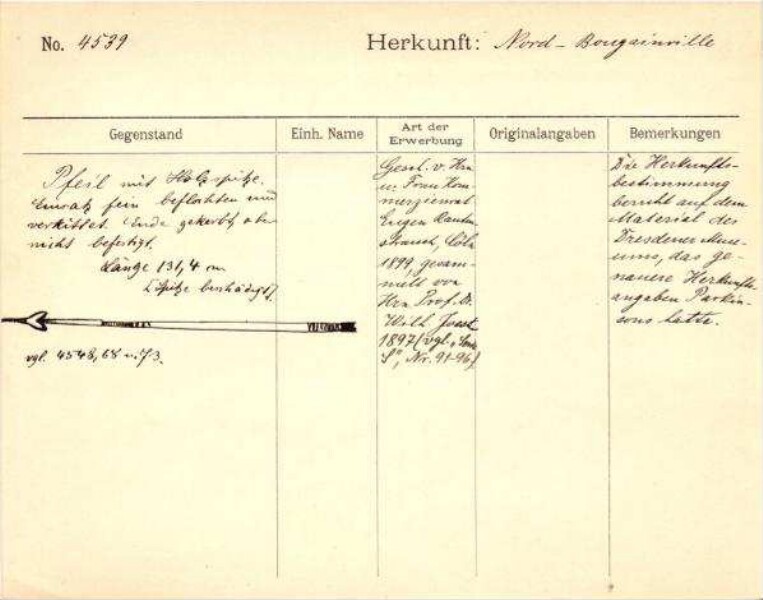 No. 4539
Herkunft: Nord-Bougainville
Gegenstand
Einh. Name
Art der
Erwerbung
Originalangaben
Bemerkungen
Pfeil mit Holzspitze.
Einsatz fein beflochten und
verkittet. Ende gekerbt, aber
nicht befestigt.
Länge 131,4 cm
(Spitze beschädigt)
vgl. 4548, 68 u. 73.
Gesch. v. Hrn
u. Frau Kom-
merzienrat
Eugen Rauten-
strauch, Cöln
1899, gesam-
melt von
Hrn Prof. Dr.
Wilh. Joest
1897 (vgl.
S", Nr. 91-96).
Die Herkunfts-
bestimmung
beruht auf dem
Material des
Dresdener Muse-
ums, das ge-
nauere Herkunfts-
angaben Parkin-
sons hatte.